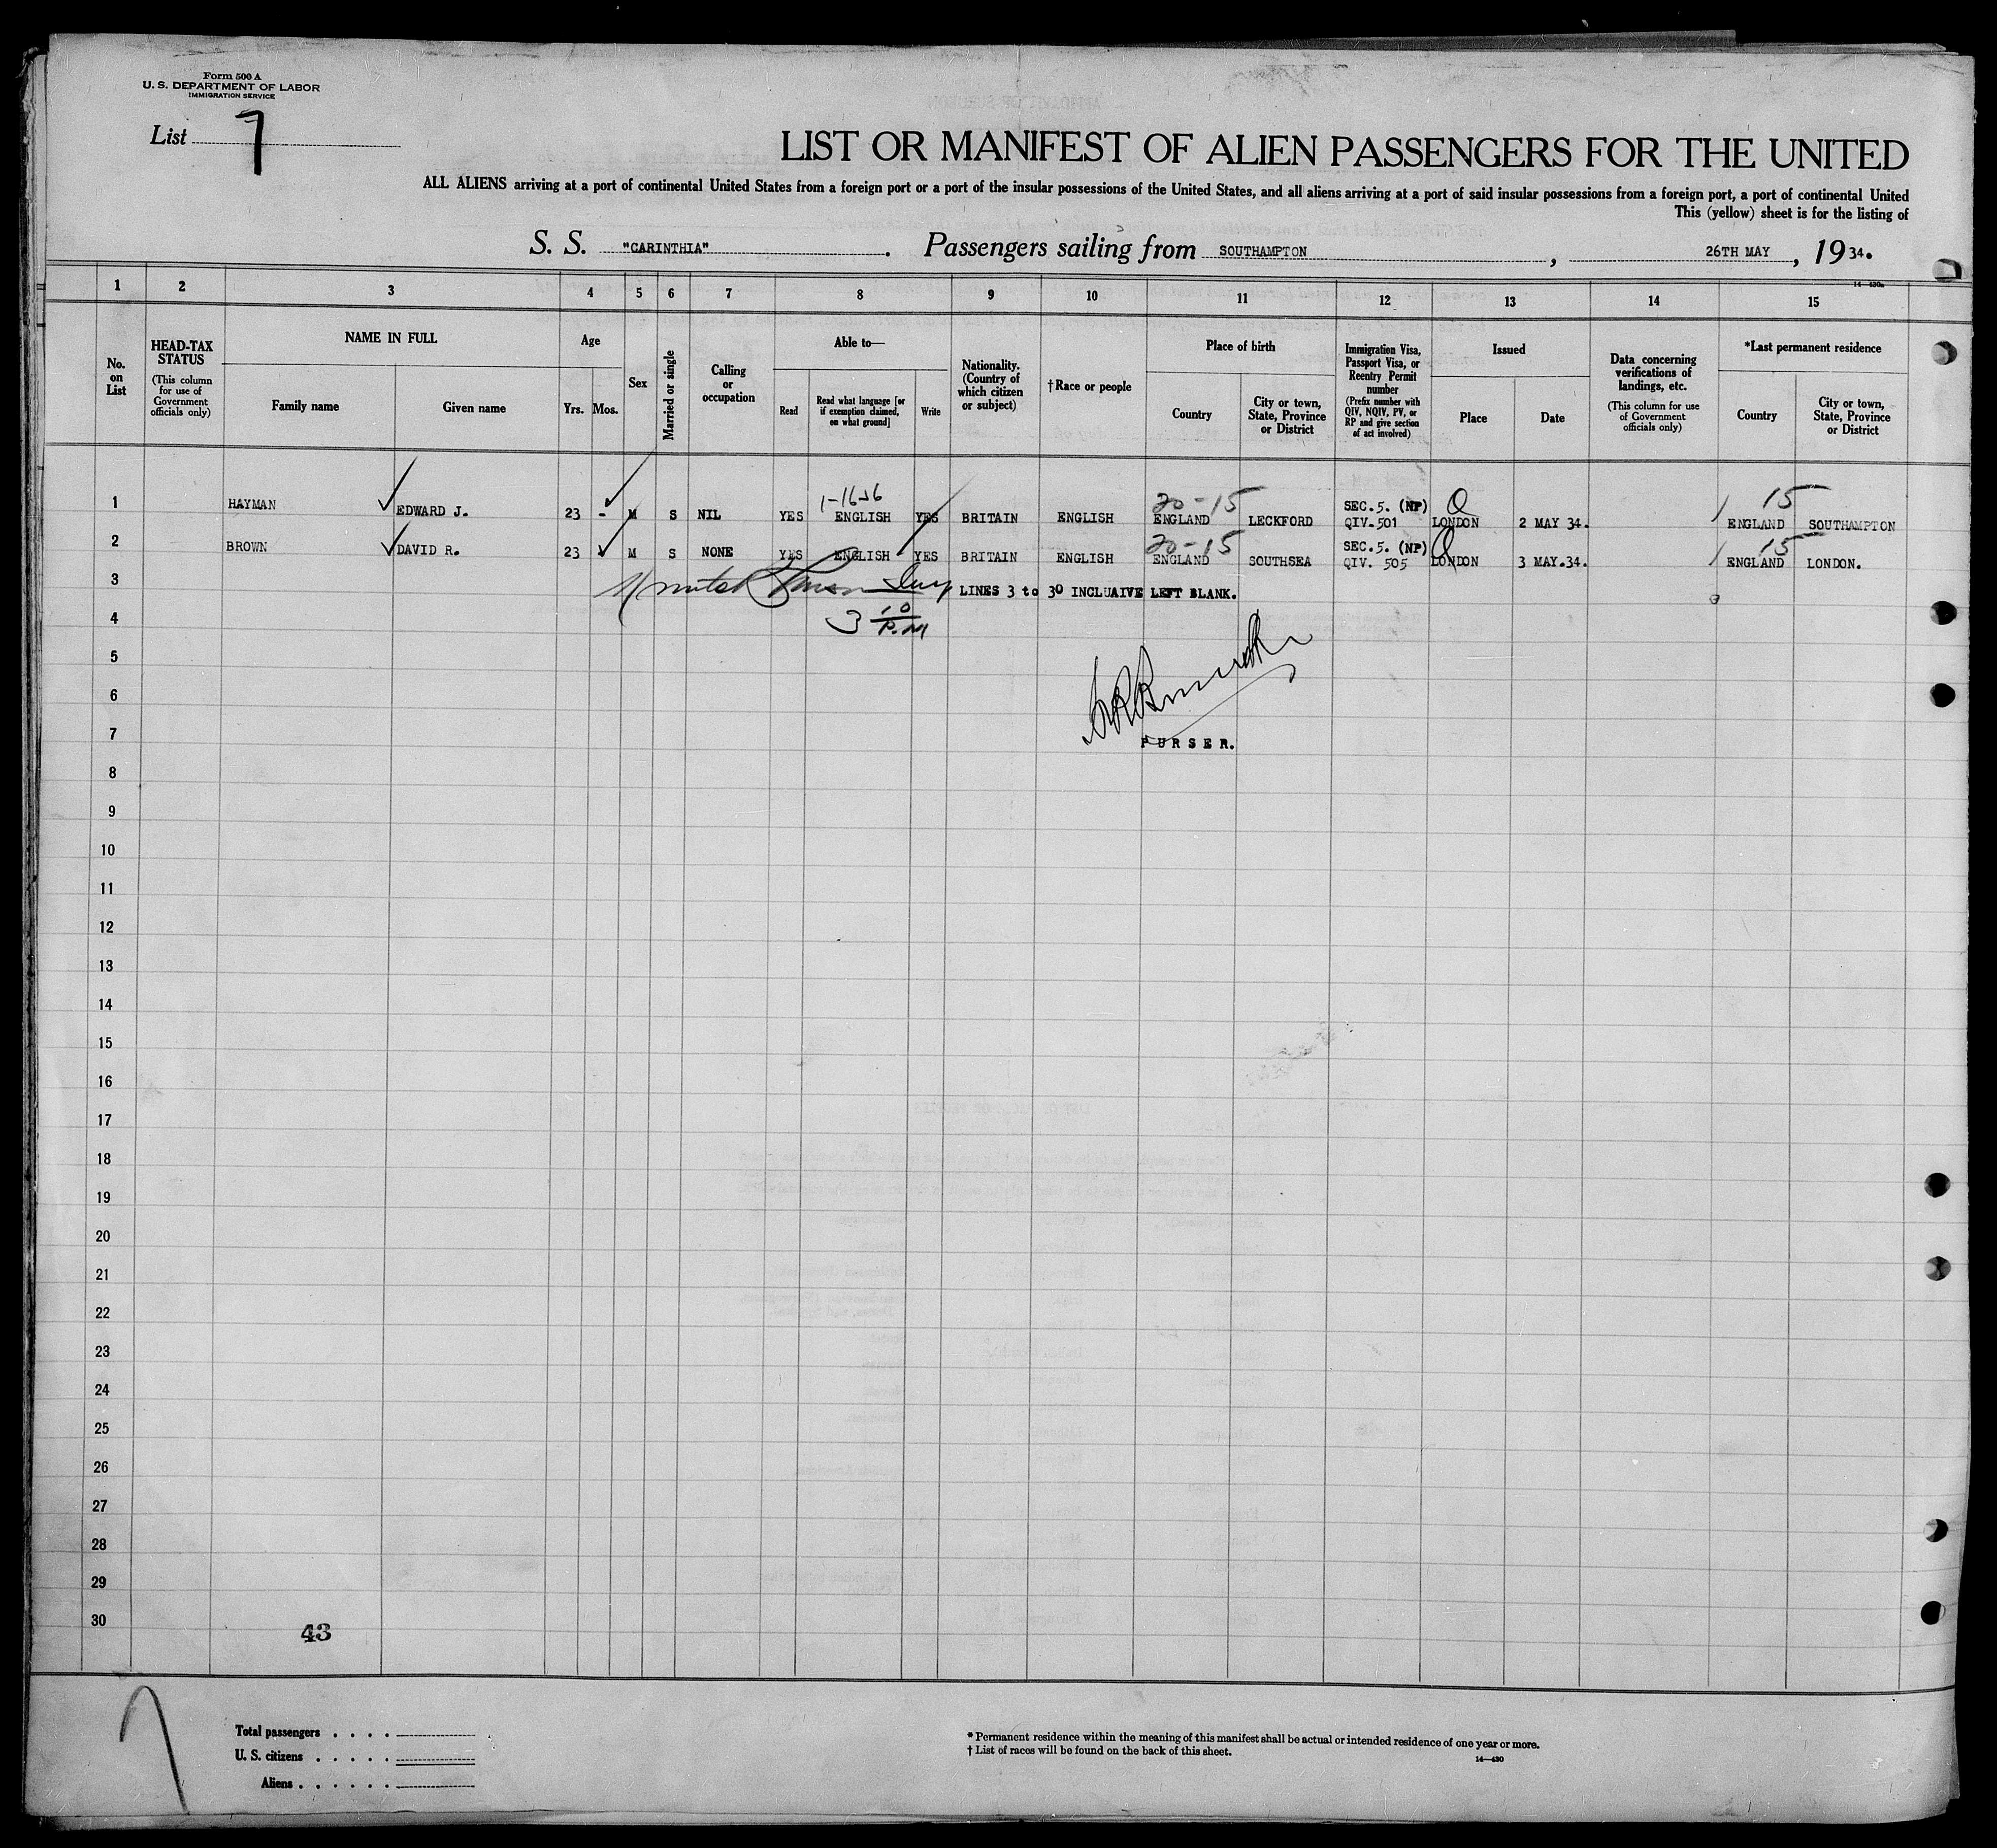 Form 500 A
U. S. DEPARTMENT OF LABOR
IMMIGRATION SERVICE
List 7
LIST OR MANIFEST OF ALIEN PASSENGERS FOR THE UNITED
ALL ALIENS arriving at a port of continental United States from a foreign port or a port of the insular possessions of the United States, and all aliens arriving at a port of said insular possessions from a foreign port, a port of continental United
This (yellow) sheet is for the listing of
S. S. "CARINTHIA". Passengers sailing from SOUTHAMPTON, 26TH MAY, 1934.
14—430a
1 2 3 4 5 6 7 8 9 10 11 12 13 14 15
No. on List
HEAD-TAX STATUS
(This column for use of Government officials only)
NAME IN FULL
Family name
Given name
Age
Yrs. Mos.
Sex
Married or single
Calling or occupation
Able to—
Read
Read what language [or if exemption claimed, on what ground]
Write
Nationality. (Country of which citizen or subject)
†Race or people
Place of birth
Country
City or town, State, Province or District
Immigration Visa, Passport Visa, or Reentry Permit number
(Prefix number with QIV, NQIV, PV, or RP and give section of act involved)
Issued
Place
Date
Data concerning verifications of landings, etc.
(This column for use of Government officials only)
*Last permanent residence
Country
City or town, State, Province or District
1-1656 20-15 SEC.5.(NP) Q 15
1 HAYMAN EDWARD J. 23 - M S NIL YES ENGLISH YES BRITAIN ENGLISH ENGLAND LECKFORD QIV.501 LONDON 2 MAY 34. ENGLAND SOUTHAMPTON
20-15 SEC.5.(NP) Q 15
2 BROWN DAVID R. 23 M S NONE YES ENGLISH YES BRITAIN ENGLISH ENGLAND SOUTHSEA QIV. 505 LONDON 3 MAY.34. ENGLAND LONDON.
3 LINES 3 to 30 INCLUAIVE LEFT BLANK.
4 3 10 P.M
5
6
7 PURSER.
8
9
10
11
12
13
14
15
16
17
18
19
20
21
22
23
24
25
26
27
28
29
30
43
7
Total passengers . . . .
U. S. citizens . . . . .
Aliens . . . . . .
* Permanent residence within the meaning of this manifest shall be actual or intended residence of one year or more.
† List of races will be found on the back of this sheet.
14—430